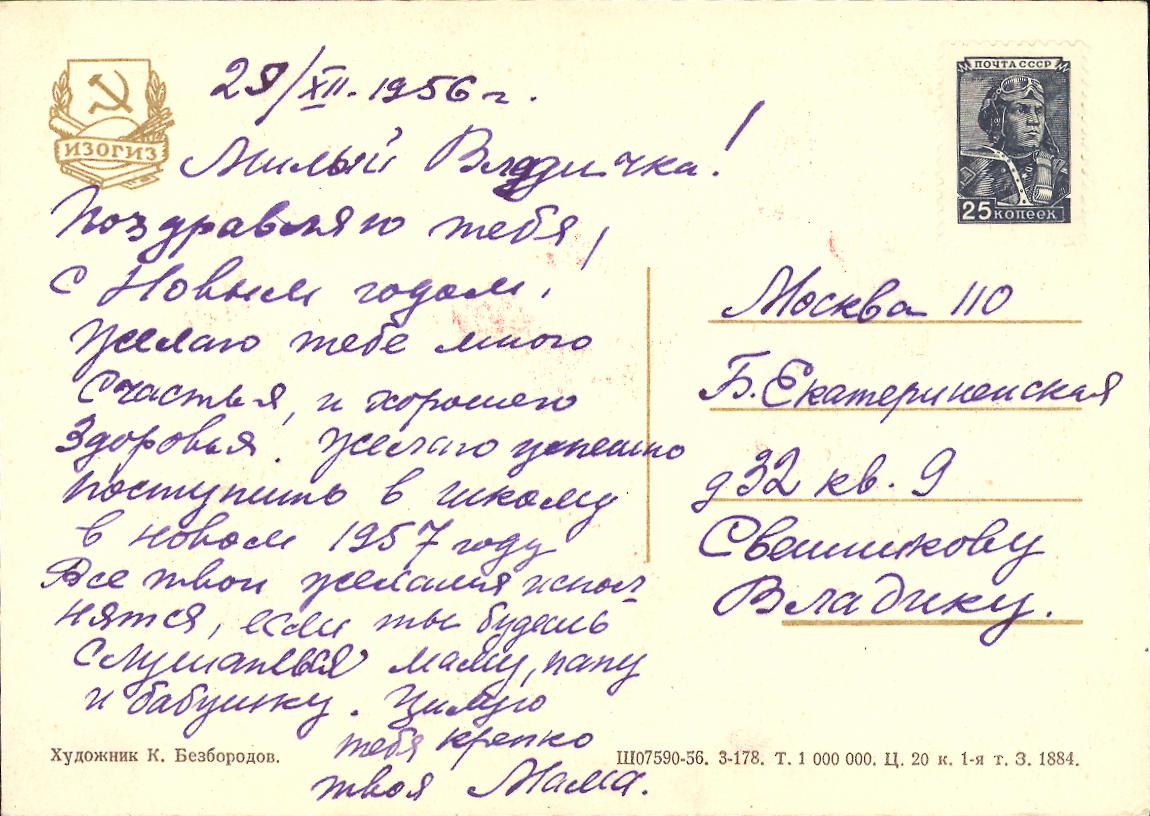 ИЗОГИЗ
29/XII. 1956 г.
Милый Владичка!
Поздравляю тебя,
с Новым годом!
Желаю тебе много
счастья, и хорошего
здоровья. Желаю успешно
поступить в школу
в новом 1957 году
Все твои желания испол-
нятся, если ты будешь
слушаться маму, папу
и бабушку. Цилую
тебя крепко
твоя Мама.
Художник К. Безбородов.
ПОЧТА СССР
25 КОПЕЕК
Москва 110
Б. Екатерининская
д 32 кв. 9
Свешникову
Владику.
Ш07590-56. 3-178. Т. 1 000 000. Ц. 20 к. 1-я т. З. 1884.